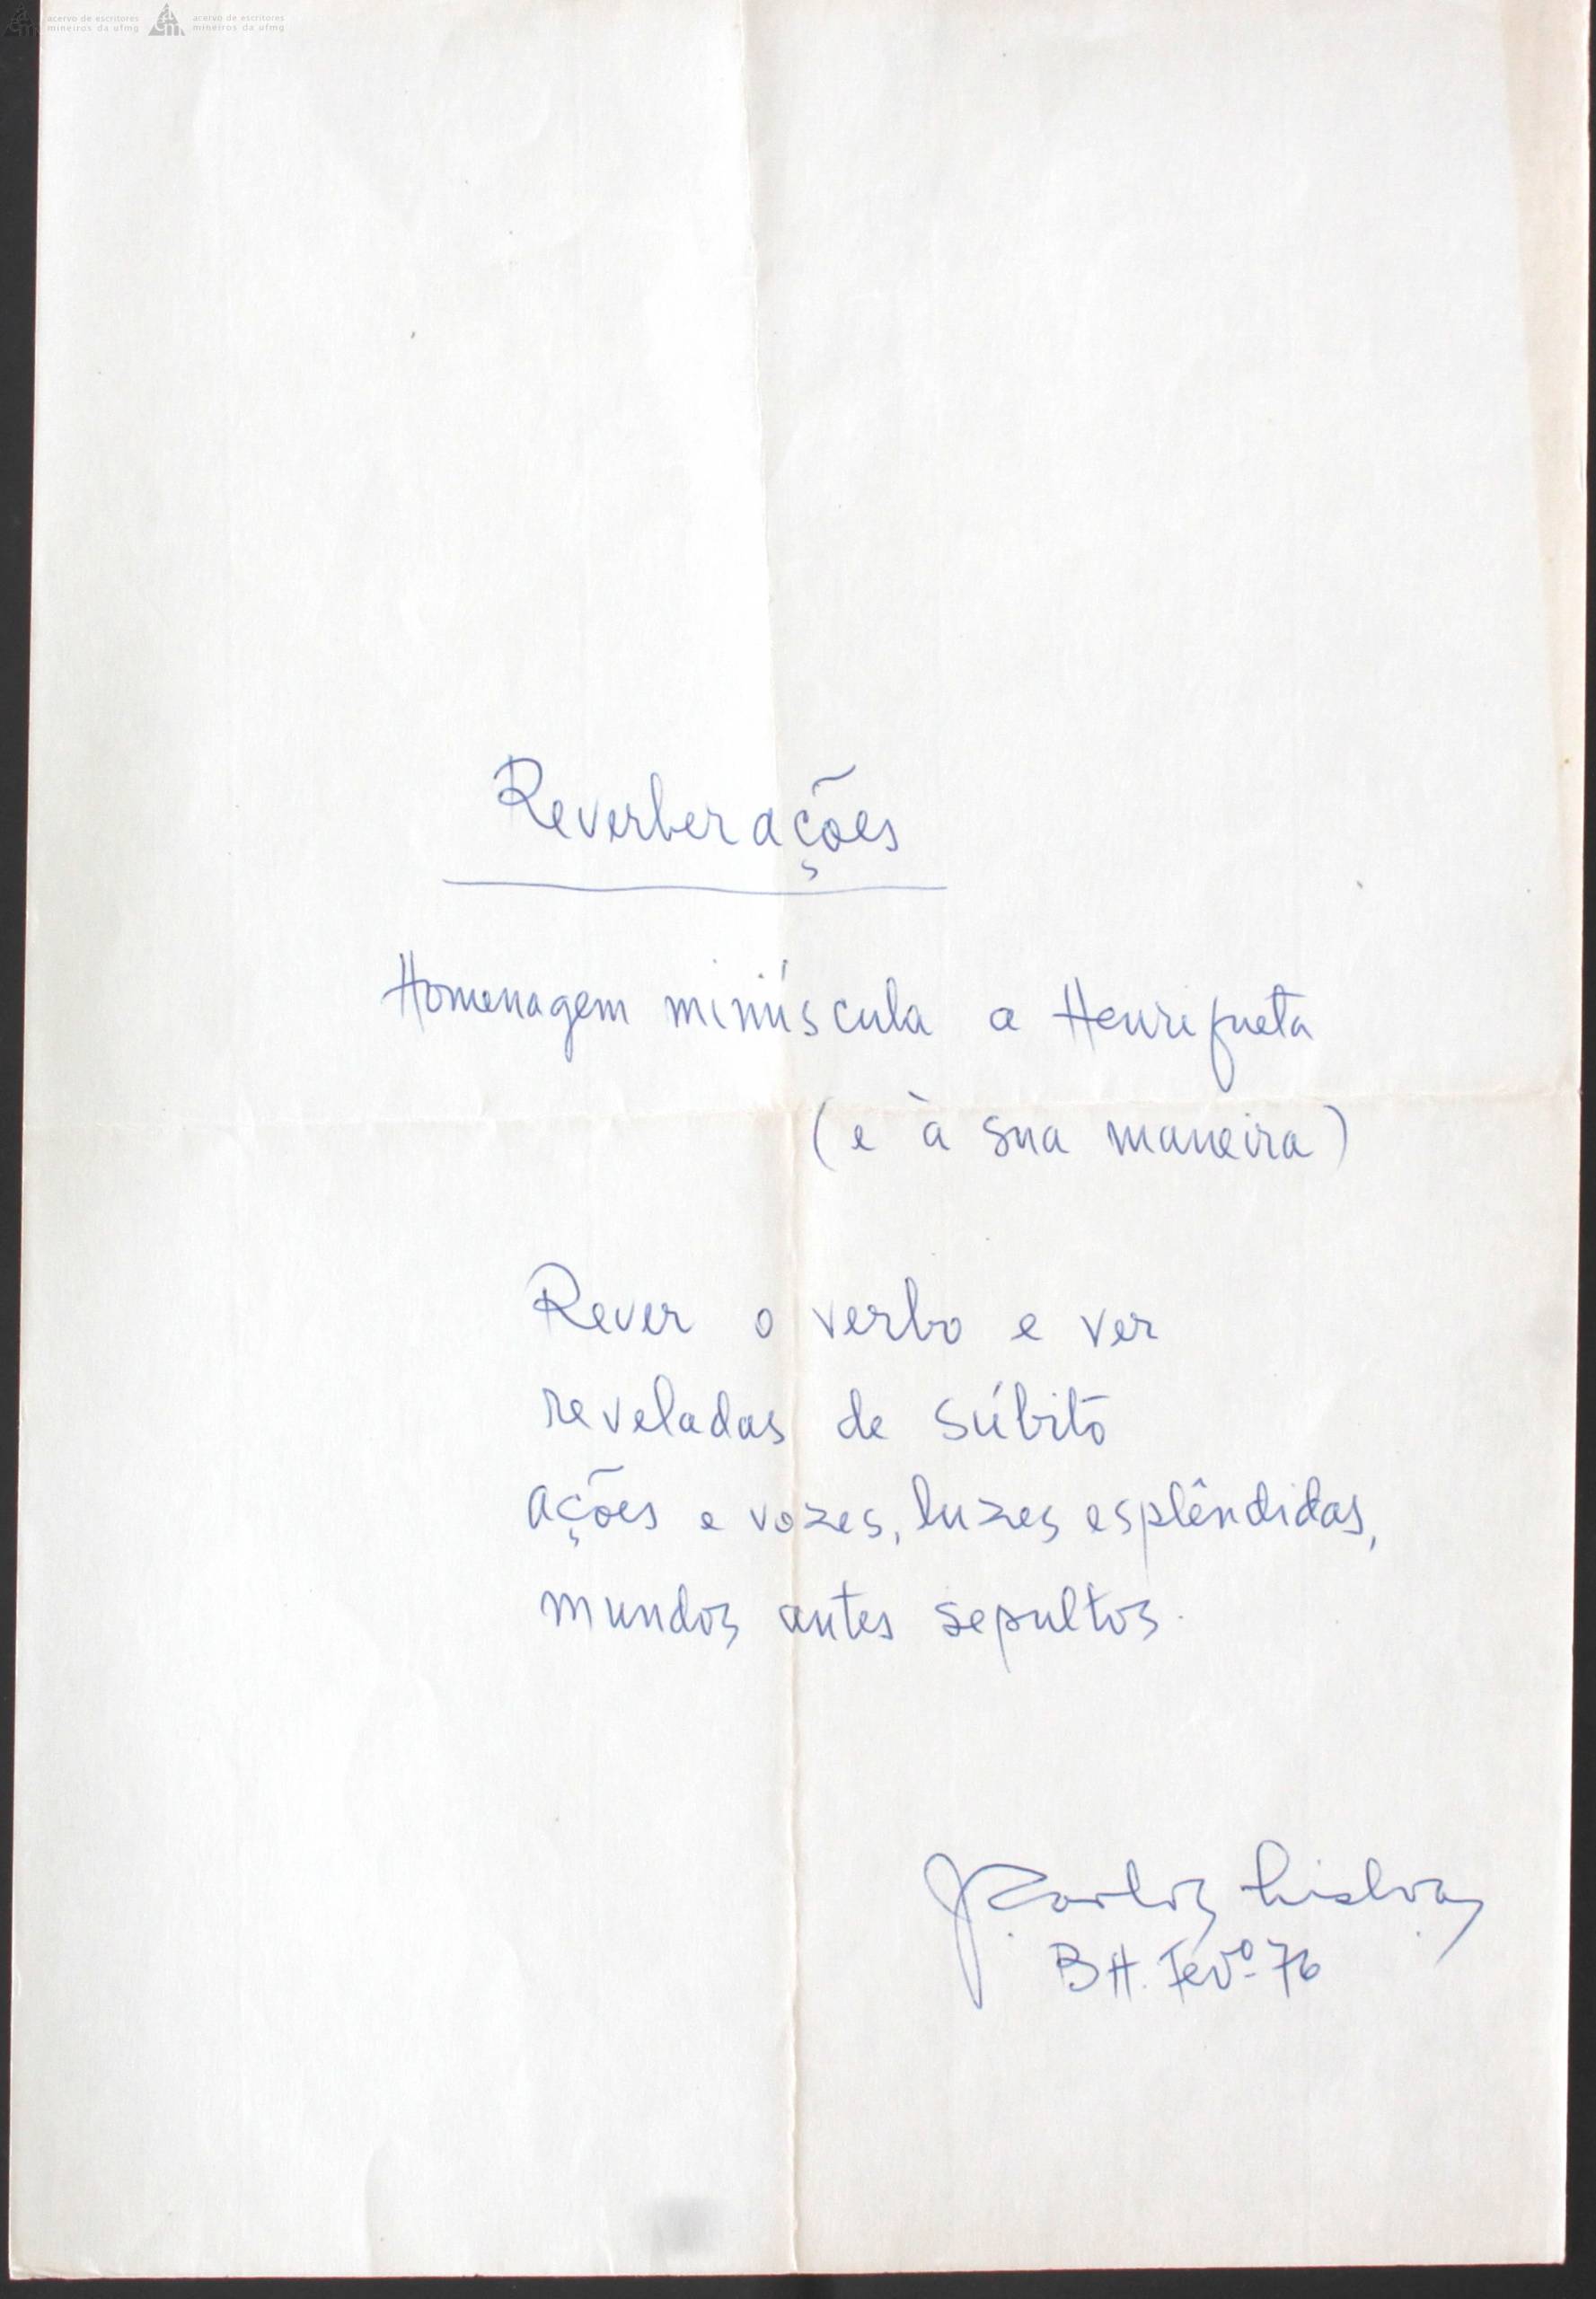 acervo de escritores mineiros da ufmg
acervo de escritores mineiros da ufmg
Reverberações
Homenagem minúscula a Henriqueta
(e à sua maneira)
Rever o verbo e ver
reveladas de súbito
ações e vozes, luzes esplêndidas,
mundos antes sepultos.
J. Carlos Lisboa
BH. Fevº 76